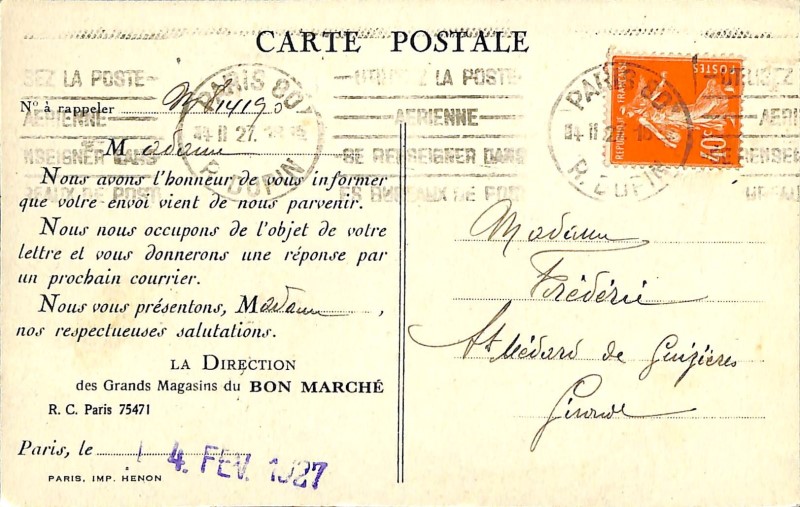 CARTE POSTALE
UTILISEZ LA POSTE
AERIENNE
SE RENSEIGNER DANS
LES BUREAUX DE POSTE
PARIS 80
14 II 27
R. DUPIN
POSTES
REPUBLIQUE FRANÇAISE
40c
No à rappeler M 14190
Madame
Nous avons l'honneur de vous informer
que votre envoi vient de nous parvenir.
Nous nous occupons de l'objet de votre
lettre et vous donnerons une réponse par
un prochain courrier.
Nous vous présentons, Madame,
nos respectueuses salutations.
LA DIRECTION
des Grands Magasins du BON MARCHÉ
R. C. Paris 75471
Paris, le 14. FEV. 1927
PARIS, IMP. HENON
Madame
Frédérie
St Médard de Guizières
Gironde